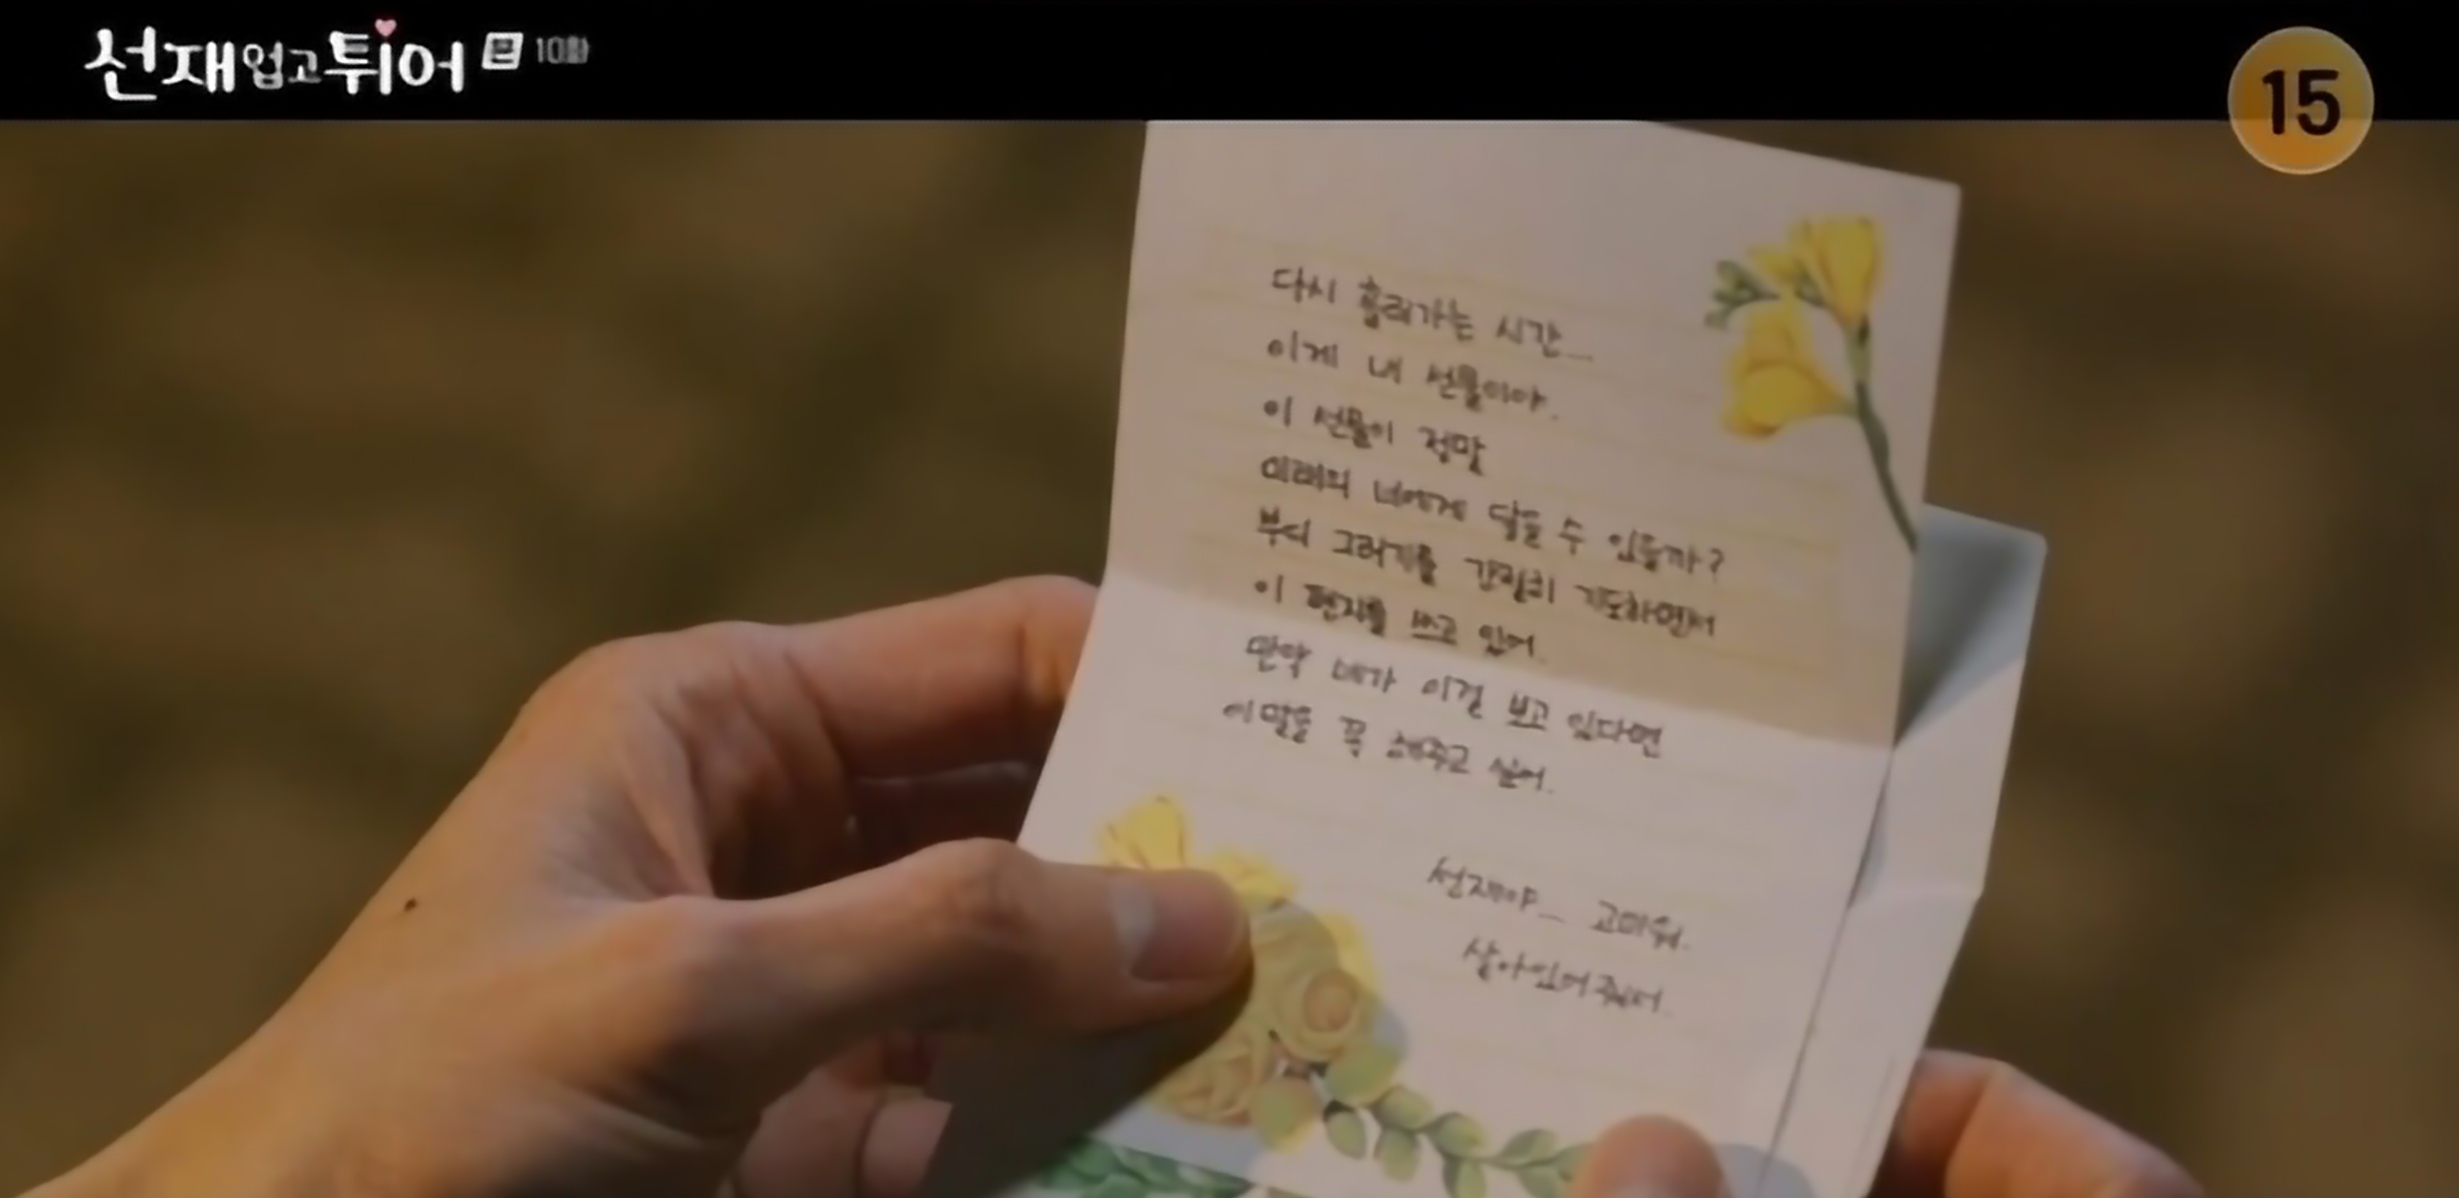 선재업고튀어 본 10화
15
다시 흘러가는 시간...
이게 내 선물이야.
이 선물이 정말
미래의 너에게 닿을 수 있을까?
부디 그러기를 간절히 기도하면서
이 편지를 쓰고 있어.
만약 네가 이걸 보고 있다면
이 말을 꼭 해주고 싶어.
선재야... 고마워.
살아있어줘서.